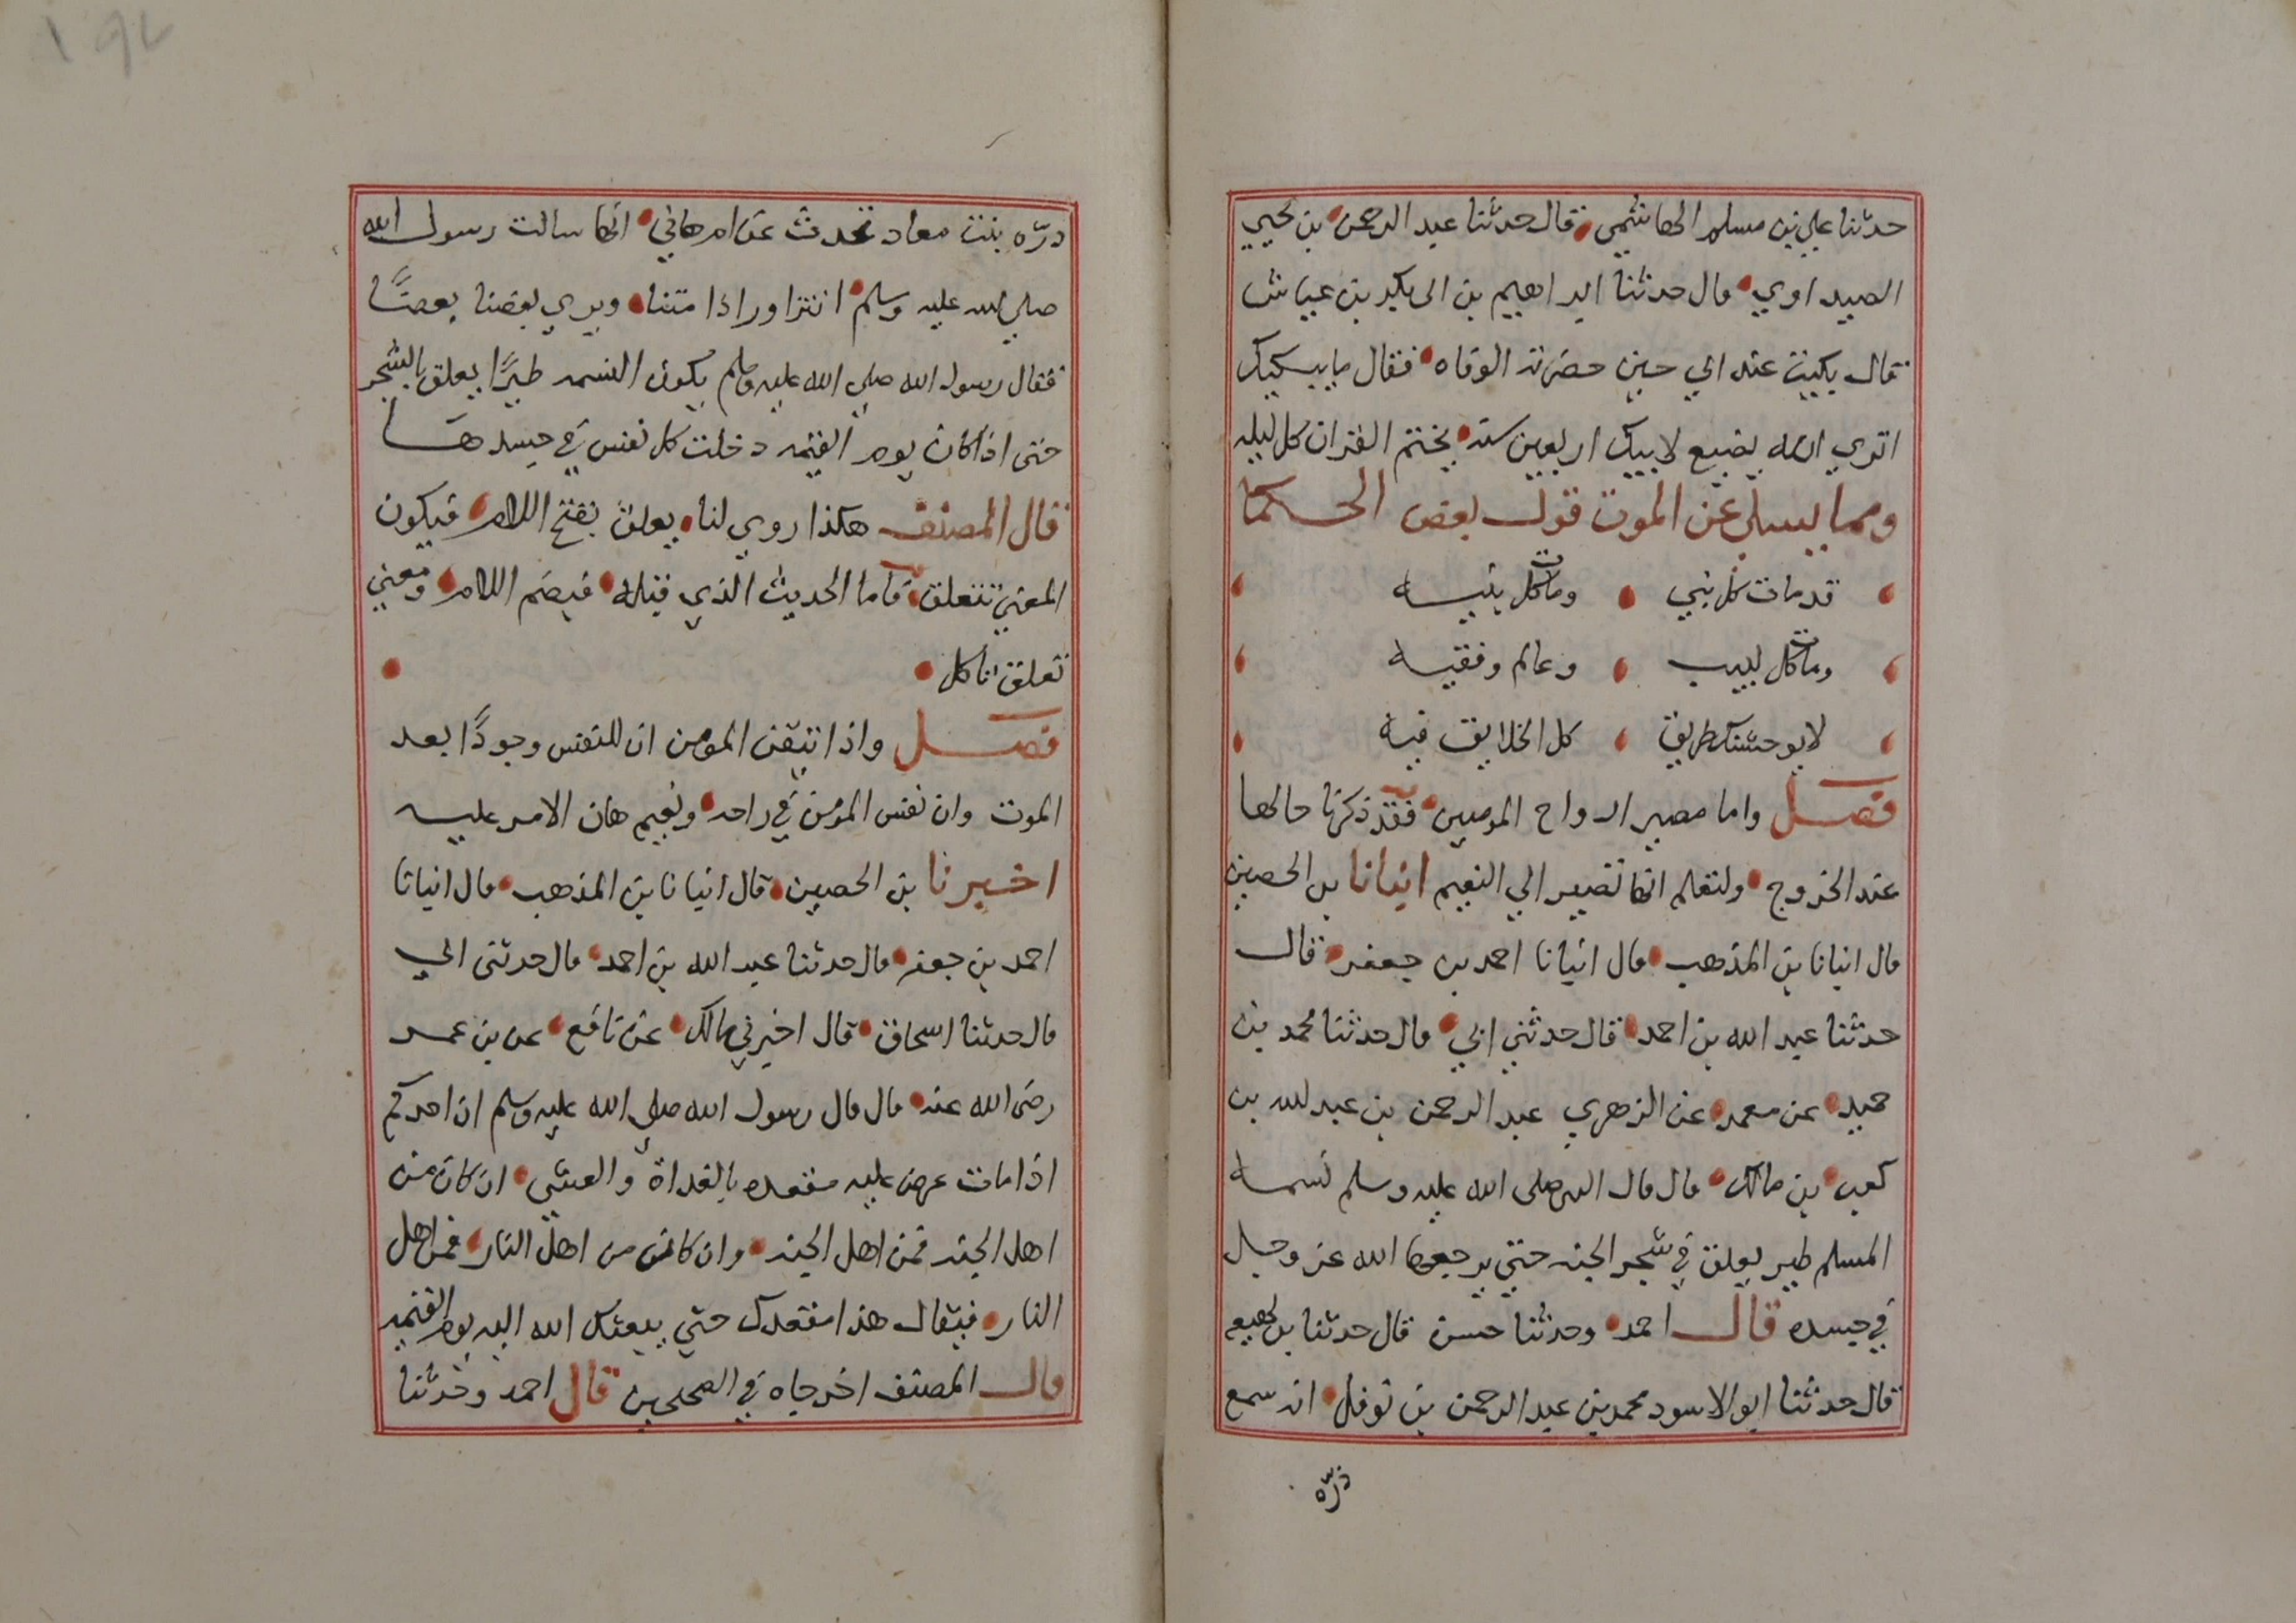 حدثنا علي بن مسلم الهاشمي قال حدثنا عبد الرحمن بن يحيي
الصيداوي قال حدثنا ابراهيم بن ابى بكير بن عياش
قال بكيت عند ابي حين حضرته الوفاه فقال ما يبكيك
اتري الله يضيع لابيك اربعين سنه يختم القران كل ليله
ومما يسلي عن الموت قول بعض الحكما
قد مات كل نبي ومات كل نبيه
ومات كل لبيب وعالم وفقيه
لا يوحشنك طريق كل الخلايق فيه
فصل واما مصير ارواح المومنين فقد ذكرنا حالها
عند الخروج ولتعلم انها تصير الي النعيم انبانا بن الحصين
قال انبانا بن المذهب قال انبانا احمد بن جعفر قال
حدثنا عبد الله بن احمد قال حدثني ابي قال حدثنا محمد بن
حميد عن معمر عن الزهري عبد الرحمن بن عبد الله بن
كعب بن مالك قال قال النبي صلى الله عليه وسلم نسمه
المسلم طير يعلق في شجر الجنه حتي يرجعها الله عز وجل
في جسده قال احمد وحدثنا حسن قال حدثنا بن لهيعه
قال حدثنا ابو الاسود محمد بن عبد الرحمن بن نوفل انه سمع
درّه
درّه بنت معاد تحدث عن ام هاني انها سالت رسول الله
صلي الله عليه وسلم انتزاور اذا متنا ويري بعضنا بعضًا
فقال رسول الله صلي الله عليه وسلم يكون النسمه طيرًا يعلق بالشجر
حتى اذا كان يوم القيمه دخلت كل نفس في جسدها
قال المصنف هكذا روي لنا يعلق بفتح اللام فيكون
المعني تتعلق فاما الحديث الذي قبله فبضم اللام ومعني
تعلق تاكل
فصل واذا تيقن المومن ان للنفس وجودًا بعد
الموت وان نفس المؤمن في راحه ونعيم هان الامر عليه
اخبرنا بن الحصين قال انبانا بن المذهب قال انبانا
احمد بن جعفر قال حدثنا عبد الله بن احمد قال حدثنى ابي
قال حدثنا اسحاق قال اخبرني مالك عن نافع عن بن عمر
رضى الله عنه قال قال رسول الله صلي الله عليه وسلم ان احدكم
اذا مات عرض عليه مقعده بالغداة والعشي ان كان من
اهل الجنه فمن اهل الجنه وان كان من اهل النار فمن اهل
النار فيقال هذا مقعدك حتي يبعثك الله اليه يوم القيمه
قال المصنف اخرجاه في الصحيحين قال احمد وحدثنا